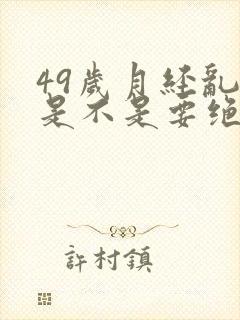 49歲月經亂
是不是要绝
許村鎮